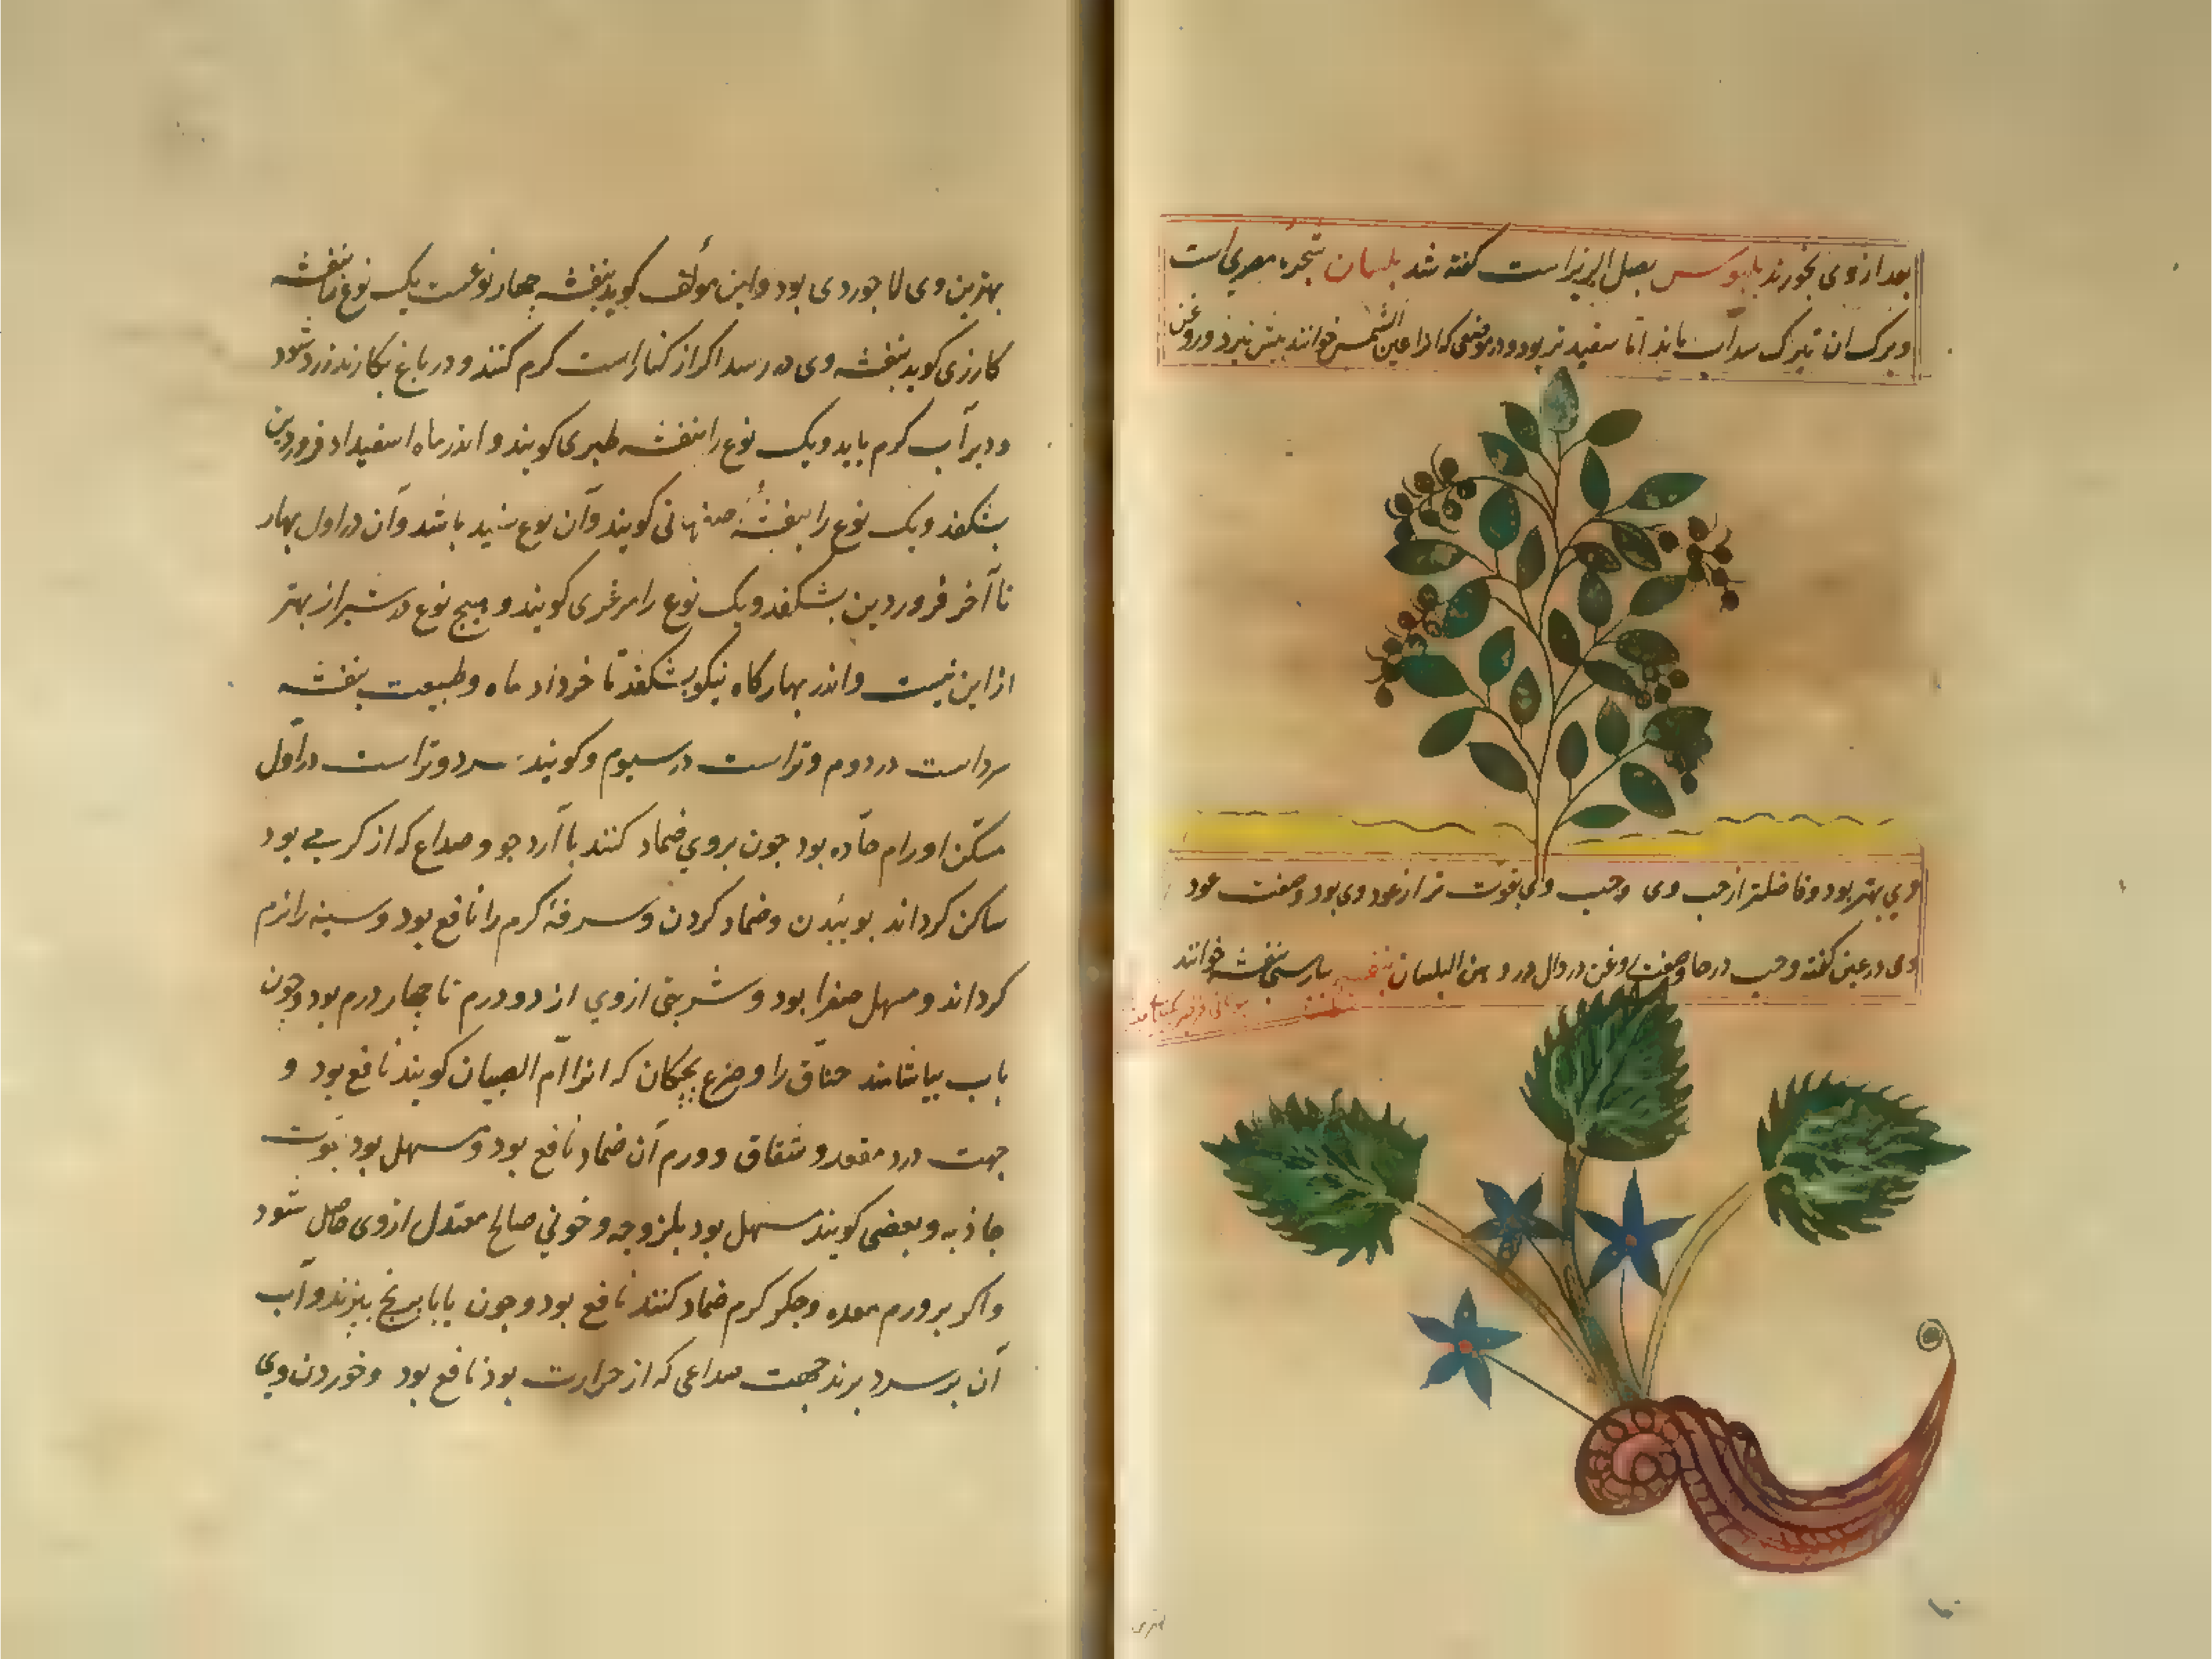 بعد از وی بخورند بلبوس بصل الریز است کفته شد بلسان شجرهٔ مصری است
و برک ان ببرک سداب ماند اما سفیدتر بود و در موضعی که انرا عین الشمس خوانند بیش نبرد و روغن
وی بهتر بود و فاضلتر از حب وی و حب وی بقوت تر از عود وی بود و صفت عود
وی در عین کفته و حب در حا و صفت روغن در دال در دهن البلسان بنفسج بپارسی بنفشه خوانند
بهترین وی لاجوردی بود و این مؤلف کوید بنفشه چهار نوعست یک نوع را بنفشه
کازری کوید بنفشه وی در سدا کر از کنار است کرم کنند و در باغ بکارند زرد شود
و دیر آب کرم باید و یک نوع را بنفشه طبری کویند و اندر ماه اسفیداد فروردین
بشکفد و یک نوع را بنفشهٔ صفهانی کویند و آن نوع سفید باشد و آن در اول بهار
تا آخر فروردین بشکفد و یک نوع را مرغزی کویند و هیچ نوع در شیراز بهتر
از این نیست و اندر بهار کاه نیکو بشکفد تا خرداد ماه و طبیعت بنفشه
سرد است در دوم و تر است در سیوم و کویند سرد و تر است در اول
مسکن اورام حاده بود چون بروی ضماد کنند با آرد جو و صداع که از کرمی بود
ساکن کرداند بوئیدن و ضماد کردن و سرفهٔ کرم را نافع بود و سینه را نرم
کرداند و مسهل صفرا بود و شربتی از وی از دو درم تا چهار درم بود و چون
باب بیاشامند خناق را و صرع بچکان که انرا ام الصبیان کویند نافع بود و
جهت درد مقعد و شقاق و ورم آن ضماد نافع بود و مسهل بود بقوت
جاذبه و بعضی کویند مسهل بود بلزوجه و خونی صالح معتدل از وی حاصل شود
و اکر بر ورم معده و جکر کرم ضماد کنند نافع بود و چون با بابونج بپزند و آب
آن بر سر برند جهت صداعی که از حرارت بود نافع بود و خوردن وی